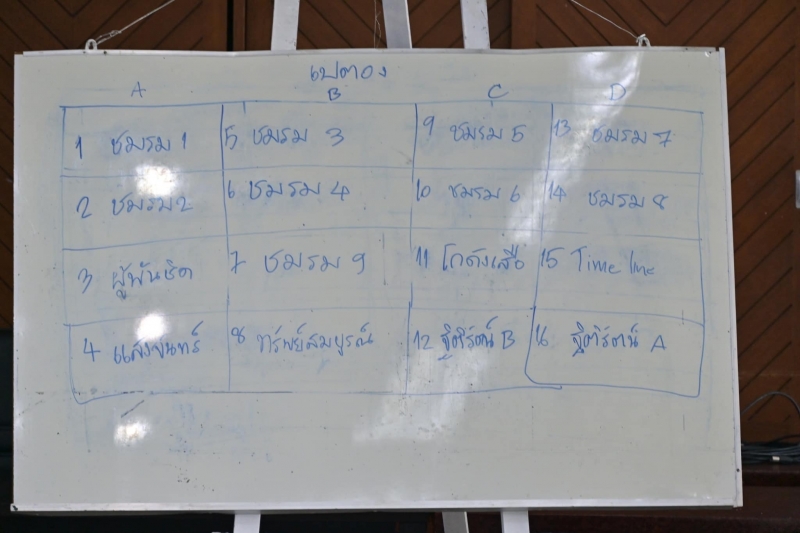 เปตอง
A B C D
1 ชมรม 1 5 ชมรม 3 9 ชมรม 5 13 ชมรม 7
2 ชมรม 2 6 ชมรม 4 10 ชมรม 6 14 ชมรม 8
3 ผู้พันธิดา 7 ชมรม 9 11 โกดังเสือ 15 Time line
4 แสงจันทร์ 8 ทรัพย์สมบูรณ์ 12 ฐิติรัตน์ B 16 ฐิติรัตน์ A